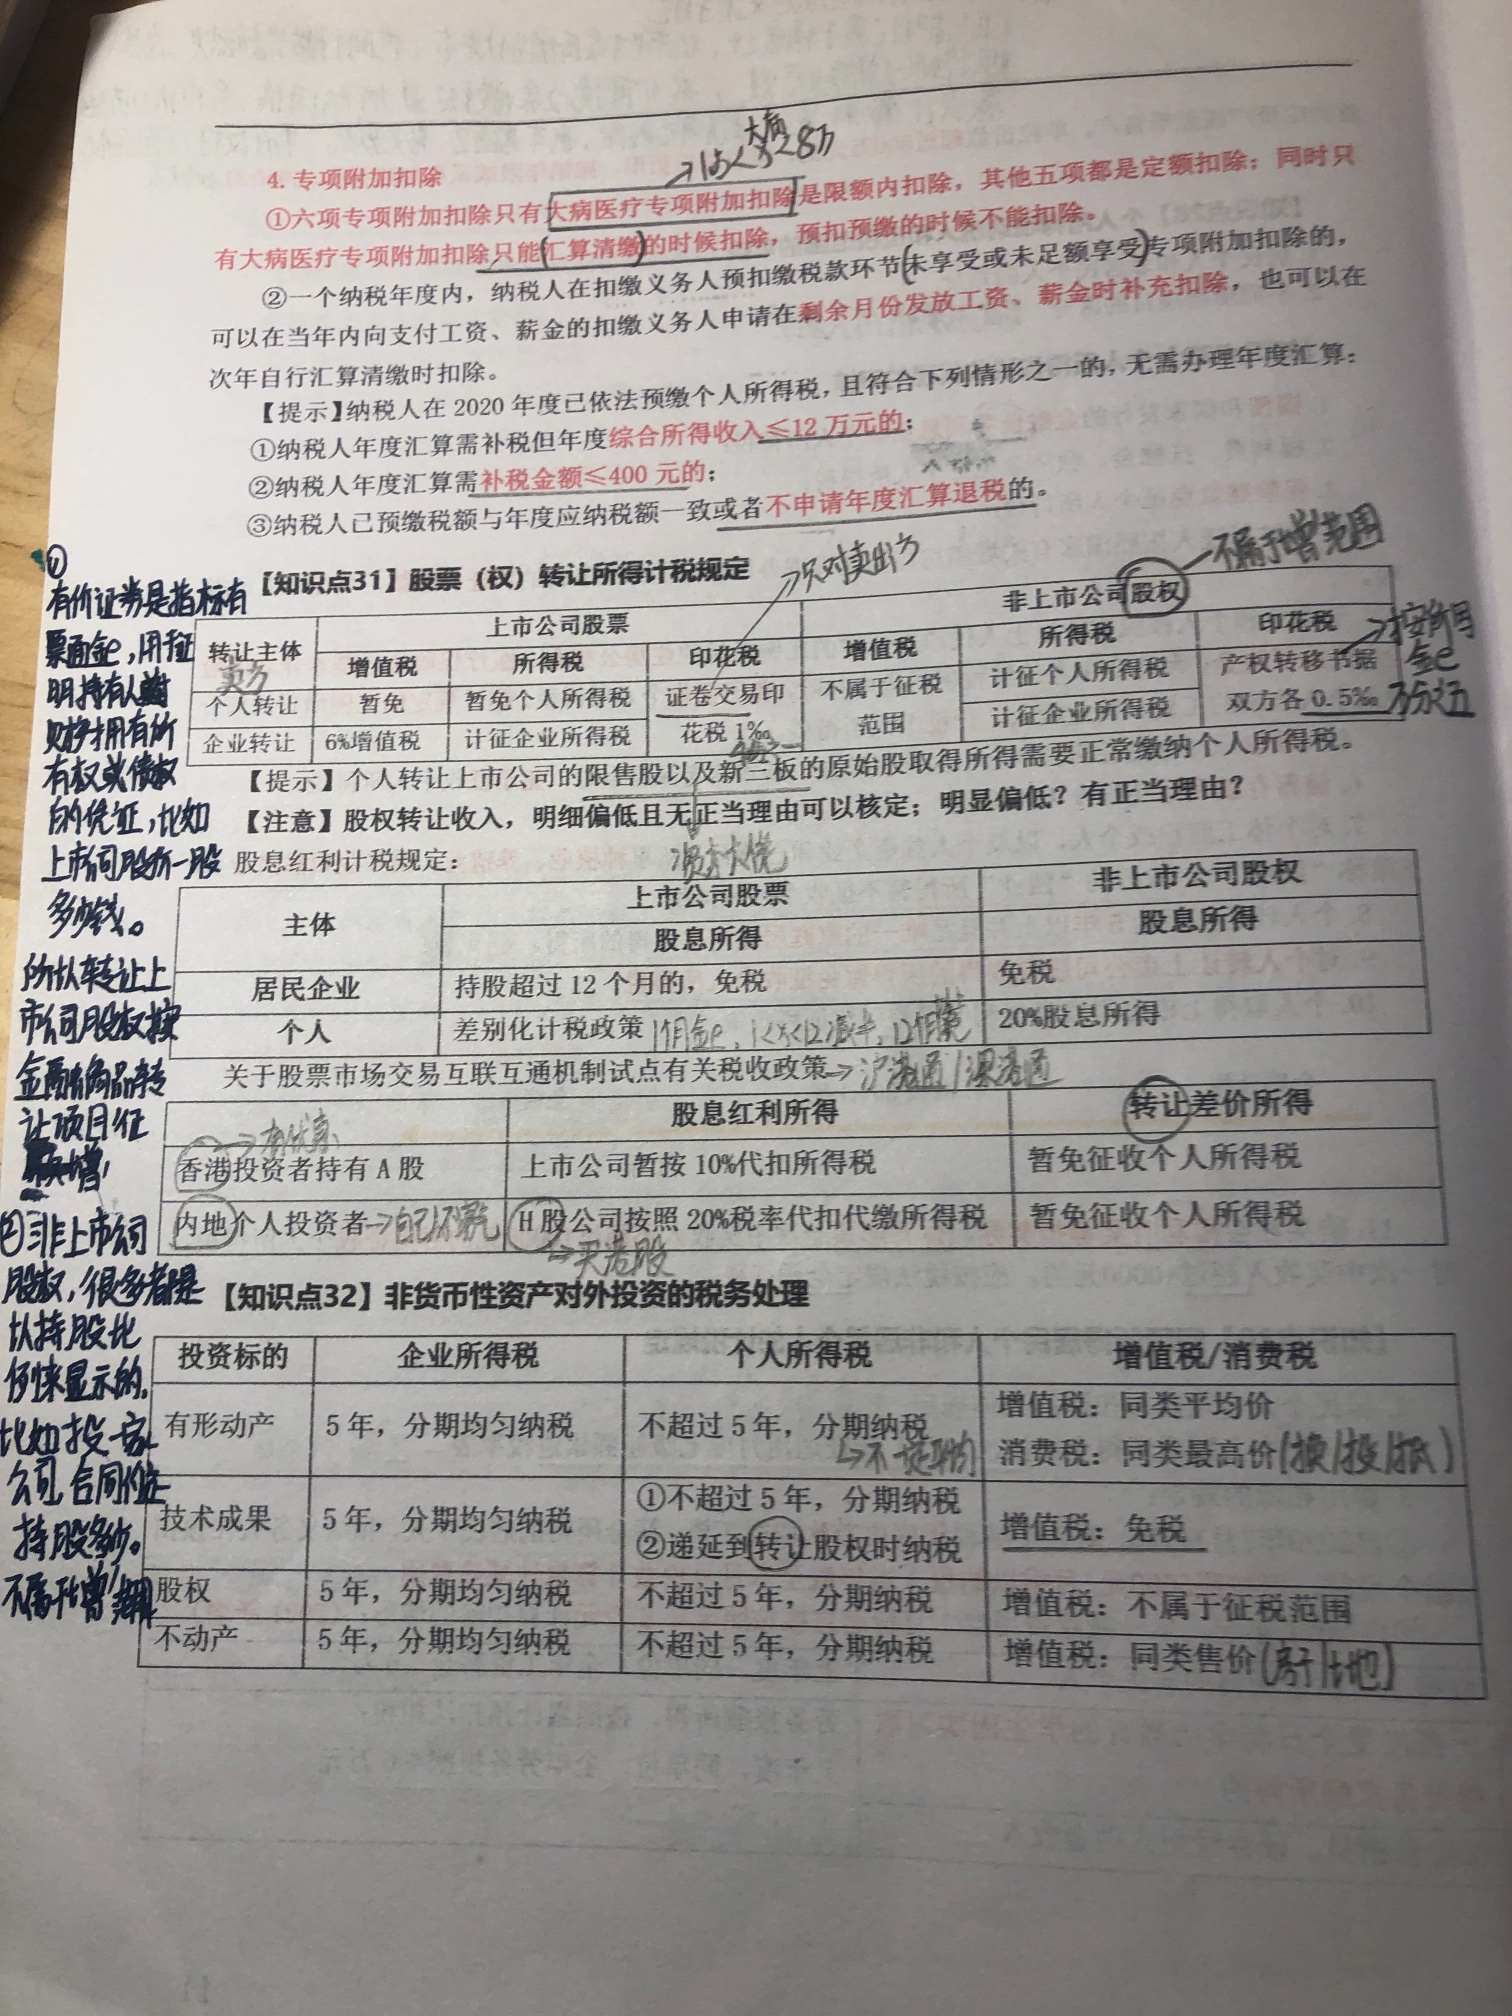 大病
→1.5<x<8万
4. 专项附加扣除
①六项专项附加扣除只有大病医疗专项附加扣除是限额内扣除，其他五项都是定额扣除；同时只
有大病医疗专项附加扣除只能(汇算清缴)的时候扣除，预扣预缴的时候不能扣除。
②一个纳税年度内，纳税人在扣缴义务人预扣缴税款环节(未享受或未足额享受)专项附加扣除的，
可以在当年内向支付工资、薪金的扣缴义务人申请在剩余月份发放工资、薪金时补充扣除，也可以在
次年自行汇算清缴时扣除。
【提示】纳税人在 2020 年度已依法预缴个人所得税，且符合下列情形之一的，无需办理年度汇算：
①纳税人年度汇算需补税但年度综合所得收入≤12 万元的；
②纳税人年度汇算需补税金额≤400 元的；
③纳税人已预缴税额与年度应纳税额一致或者不申请年度汇算退税的。
【知识点31】股票（权）转让所得计税规定
→只对卖出方
不属于增范围
转让主体 上市公司股票 非上市公司股权
增值税 所得税 印花税 增值税 所得税 印花税
卖方
→按所月金e
万分之五
个人转让 暂免 暂免个人所得税 证卷交易印花税 1‰ 不属于征税范围 计征个人所得税 产权转移书据双方各 0.5‰
企业转让 6%增值税 计征企业所得税 计征企业所得税
【提示】个人转让上市公司的限售股以及新三板的原始股取得所得需要正常缴纳个人所得税。
【注意】股权转让收入，明细偏低且无正当理由可以核定；明显偏低？有正当理由？
股息红利计税规定：
主体 上市公司股票 非上市公司股权
股息所得 股息所得
居民企业 持股超过 12 个月的，免税 免税
个人 差别化计税政策 1个月全e，1<x<12减半，12个月免 20%股息所得
关于股票市场交易互联互通机制试点有关税收政策→沪港通/深港通
股息红利所得 转让差价所得
→有优惠
香港投资者持有 A 股 上市公司暂按 10%代扣所得税 暂免征收个人所得税
内地个人投资者 H 股公司按照 20%税率代扣代缴所得税 暂免征收个人所得税
→买港股
【知识点32】非货币性资产对外投资的税务处理
投资标的 企业所得税 个人所得税 增值税/消费税
有形动产 5 年，分期均匀纳税 不超过 5 年，分期纳税 增值税：同类平均价
→不一定平均 消费税：同类最高价(换/投/抵)
技术成果 5 年，分期均匀纳税 ①不超过 5 年，分期纳税 增值税：免税
②递延到转让股权时纳税
股权 5 年，分期均匀纳税 不超过 5 年，分期纳税 增值税：不属于征税范围
不动产 5 年，分期均匀纳税 不超过 5 年，分期纳税 增值税：同类售价(房/土地)
①
有价证券是指标有
票面金e，用于证
明持有人
财物拥有所
有权或债权
的凭证，比如
上市公司股份一股
多少钱。
所以转让上
市公司股权按
金融商品转
让项目征
增
②非上市公司
股权，很多都是
以持股比
例来显示的，
比如投一家
公司，合同约定
持股多少。
不属于增范围